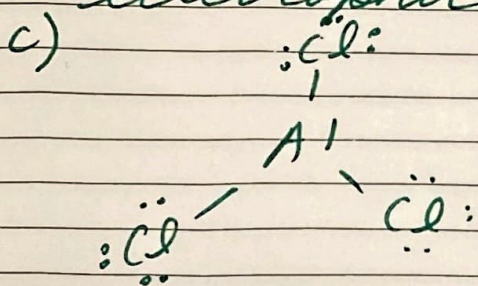 c)
:Cl:
Al
:Cl
Cl: